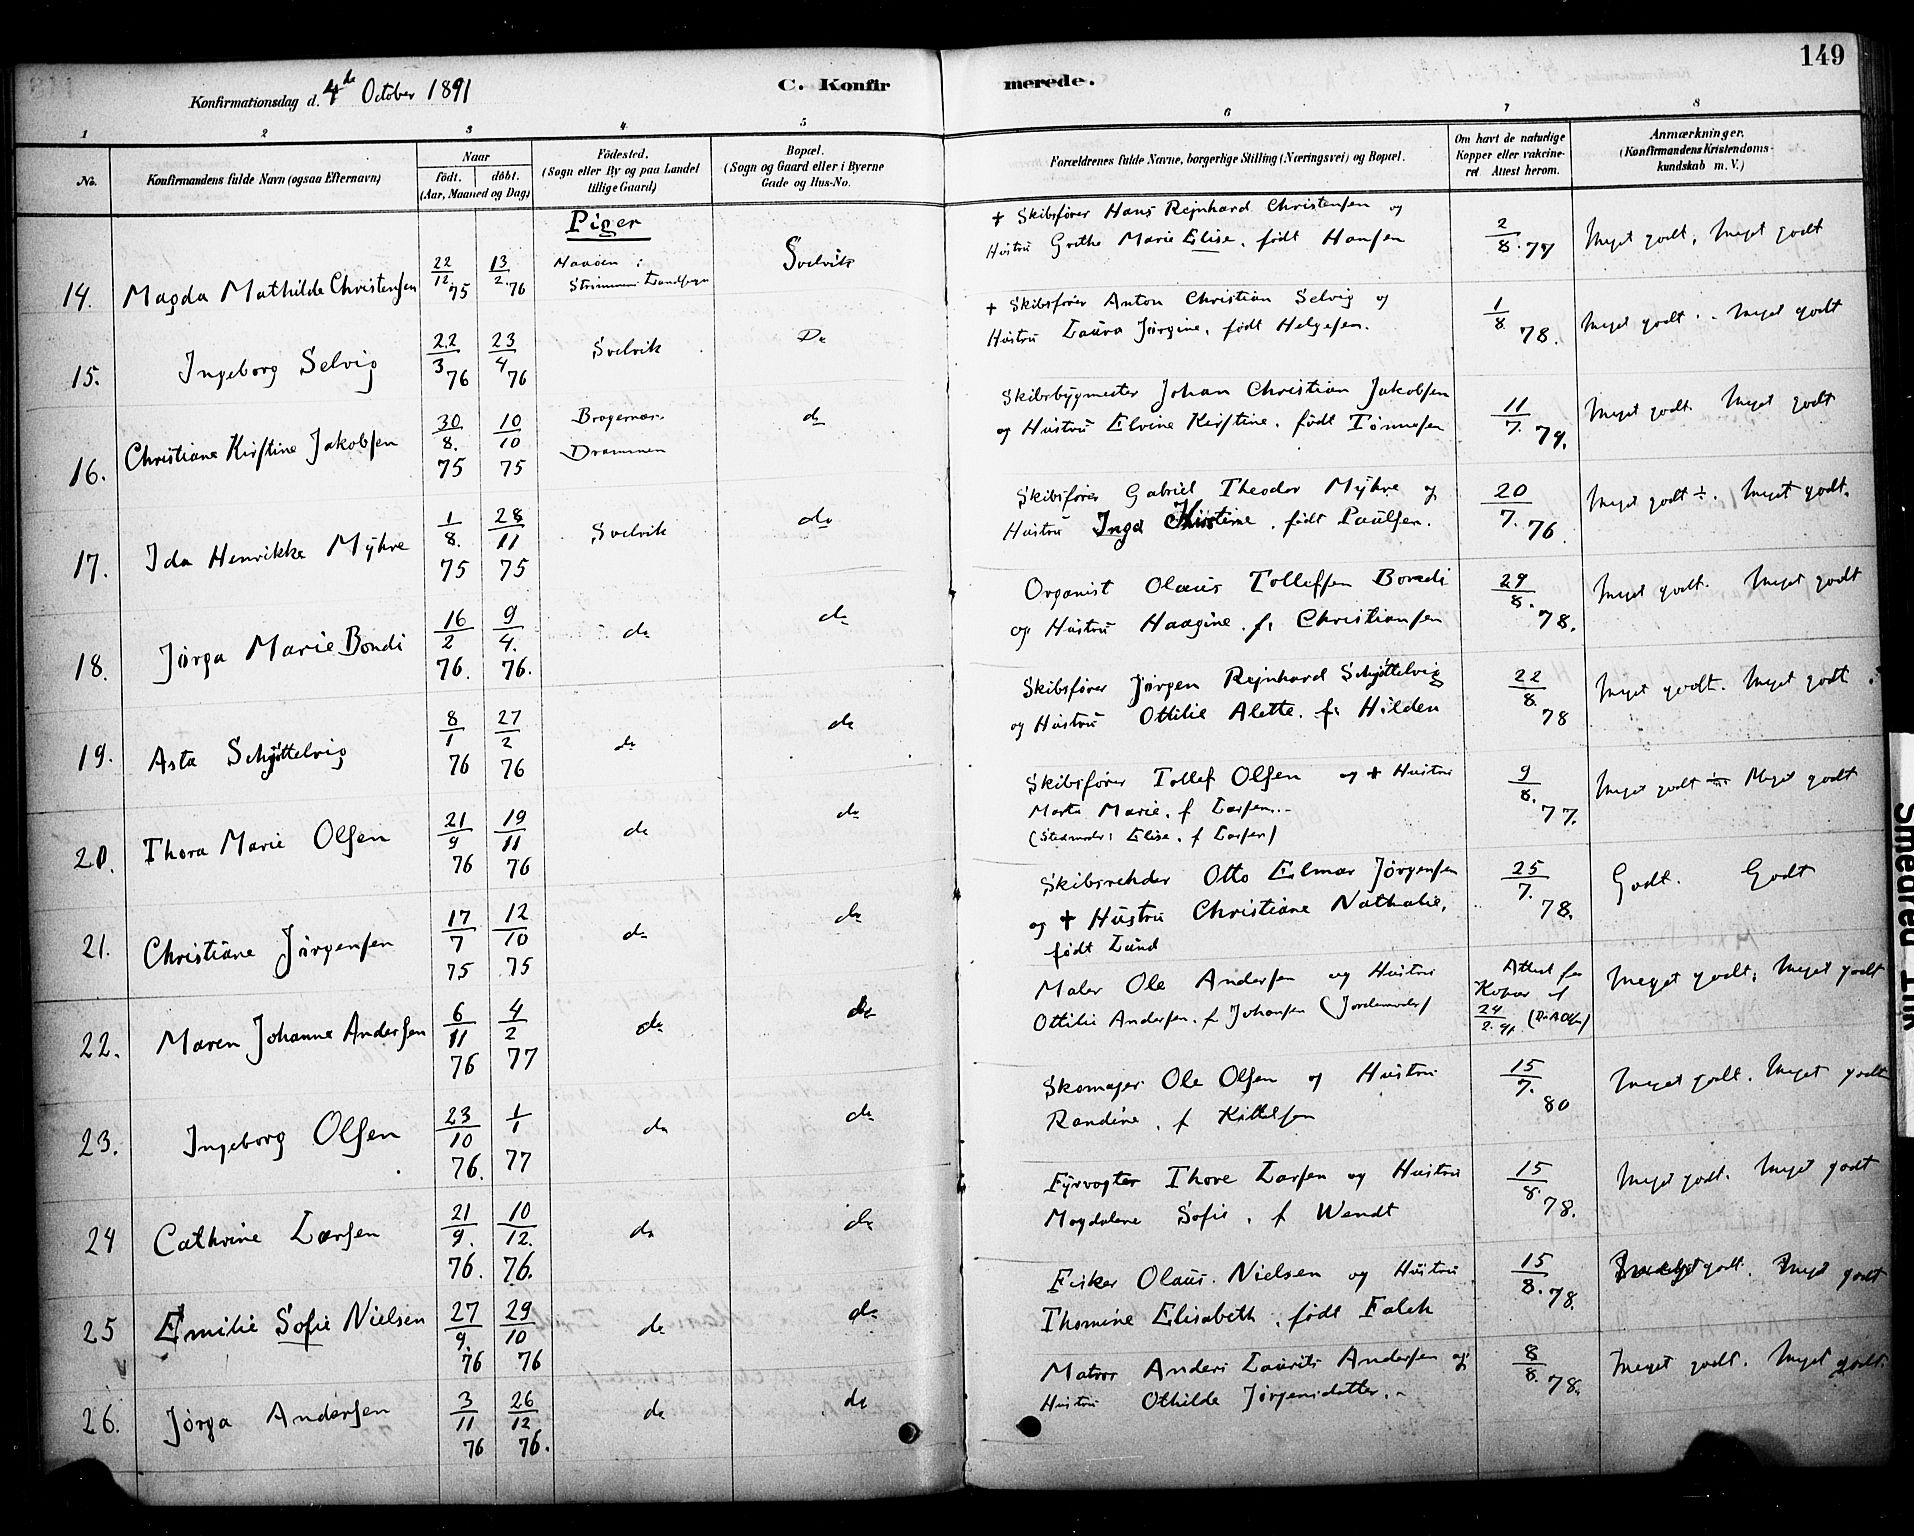 149
Konfirmationsdag d. 4de October 1891
C. Konfirmerede.
1 2 3 4 5 6 7 8
No. Konfirmandens fulde Navn (ogsaa Efternavn) Naar født. døbt. (Aar, Maaned og Dag) Fødested. (Sogn eller By og paa Landet tillige Gaard) Bopæl. (Sogn og Gaard eller i Byerne Gade og Hus-No. Forældrenes fulde Navne, borgerlige Stilling (Næringsvei) og Bopæl. Om havt de naturlige Kopper eller vakcineret. Attest herom. Anmærkninger. (Konfirmandens Kristendomskundskab m. V.)
Piger
14. Magda Mathilde Christensen 22/12 75 13/2 76 Svelvik
+ Skibsfører Hans Rejnhard Christensen og
Hustru Grethe Marie Elise, født Hansen 2/8. 79 Meget godt, Meget godt
15. Ingeborg Selvig 22/3 76 23/4 76 Svelvik Do
+ Skibsfører Anton Christian Selvig og
Hustru Laura Jørgine, født Helgesen. 1/8 78. Meget godt. Meget godt
16. Christiane Kirstine Jakobsen 30/8. 75 10/10 75 Bragernæs Drammen do
Skibsbygmester Johan Christian Jakobsen
og Hustru Elvine Kirstine, født Tønnesen 11/7. 79. Meget godt. Meget godt
17. Ida Henrikke Myhre 1/8. 75 28/11 75 Svelvik do
Skibsfører Gabriel Theodor Myhre og
Hustru Inga Kirstine, født Paulsen. 20/7. 76. Meget godt ÷. Meget godt.
18. Jørga Marie Bondi 16/2 76. 9/4. 76. do do
Organist Olaus Tollefsen Bondi
og Hustru Haagine. f. Christiansen 29/8. 78. Meget godt. Meget godt
19. Asta Schjøttelvig 8/1 76 27/2 76 do do
Skibsfører Jørgen Rejnhard Schjøttelvig
og Hustru Ottilie Alette. f. Hilden 22/8. 78 Meget godt. Meget godt
20. Thora Marie Olsen 21/9 76 19/11 76 do do
Skibsfører Tollef Olsen og + Hustru
Marte Marie, f Larsen.
(Stedmoder: Elise, f Larsen) 9/8. 77. Meget godt ÷ Meget godt
21. Christiane Jørgensen 17/7 75 12/10 75 do do
Skibsrehder Otto Elmar Jørgensen
og + Hustru Christiane Nathalie,
født Lund 25/7. 78. Godt. Godt
22. Maren Johanne Andersen 6/11 76 4/2 77 do do
Maler Ole Andersen og Hustru
Ottilie Andersen. f Johansen (Jordemoder) Attest for Kopper af 24/2. 91. Meget godt, Meget godt
23. Ingeborg Olsen 23/10 76. 1/1 77 do do
Skomager Ole Olsen og Hustru
Randine, f Kittelsen 15/7. 80 Meget godt. Meget godt
24 Cathrine Larsen 21/9. 76. 10/12. 76. do do
Fyrvogter Thore Larsen og Hustru
Magdalene Sofie, f Wendt 15/8. 78. Meget godt. Meget godt
25 Emilie Sofie Nielsen 27/9. 76 29/10 76 do do
Fisker Olaus Nielsen og Hustru
Thomine Elisabeth, født Falch 15/8. 78. Meget godt. Meget godt
26. Jørga Andersen 3/11 76 26/12 76. do do
Matros Anders Laurits Andersen og
Hustru Othilde Jørgensdatter. 8/8. 78. Meget godt. Meget godt.
Smeared Ink